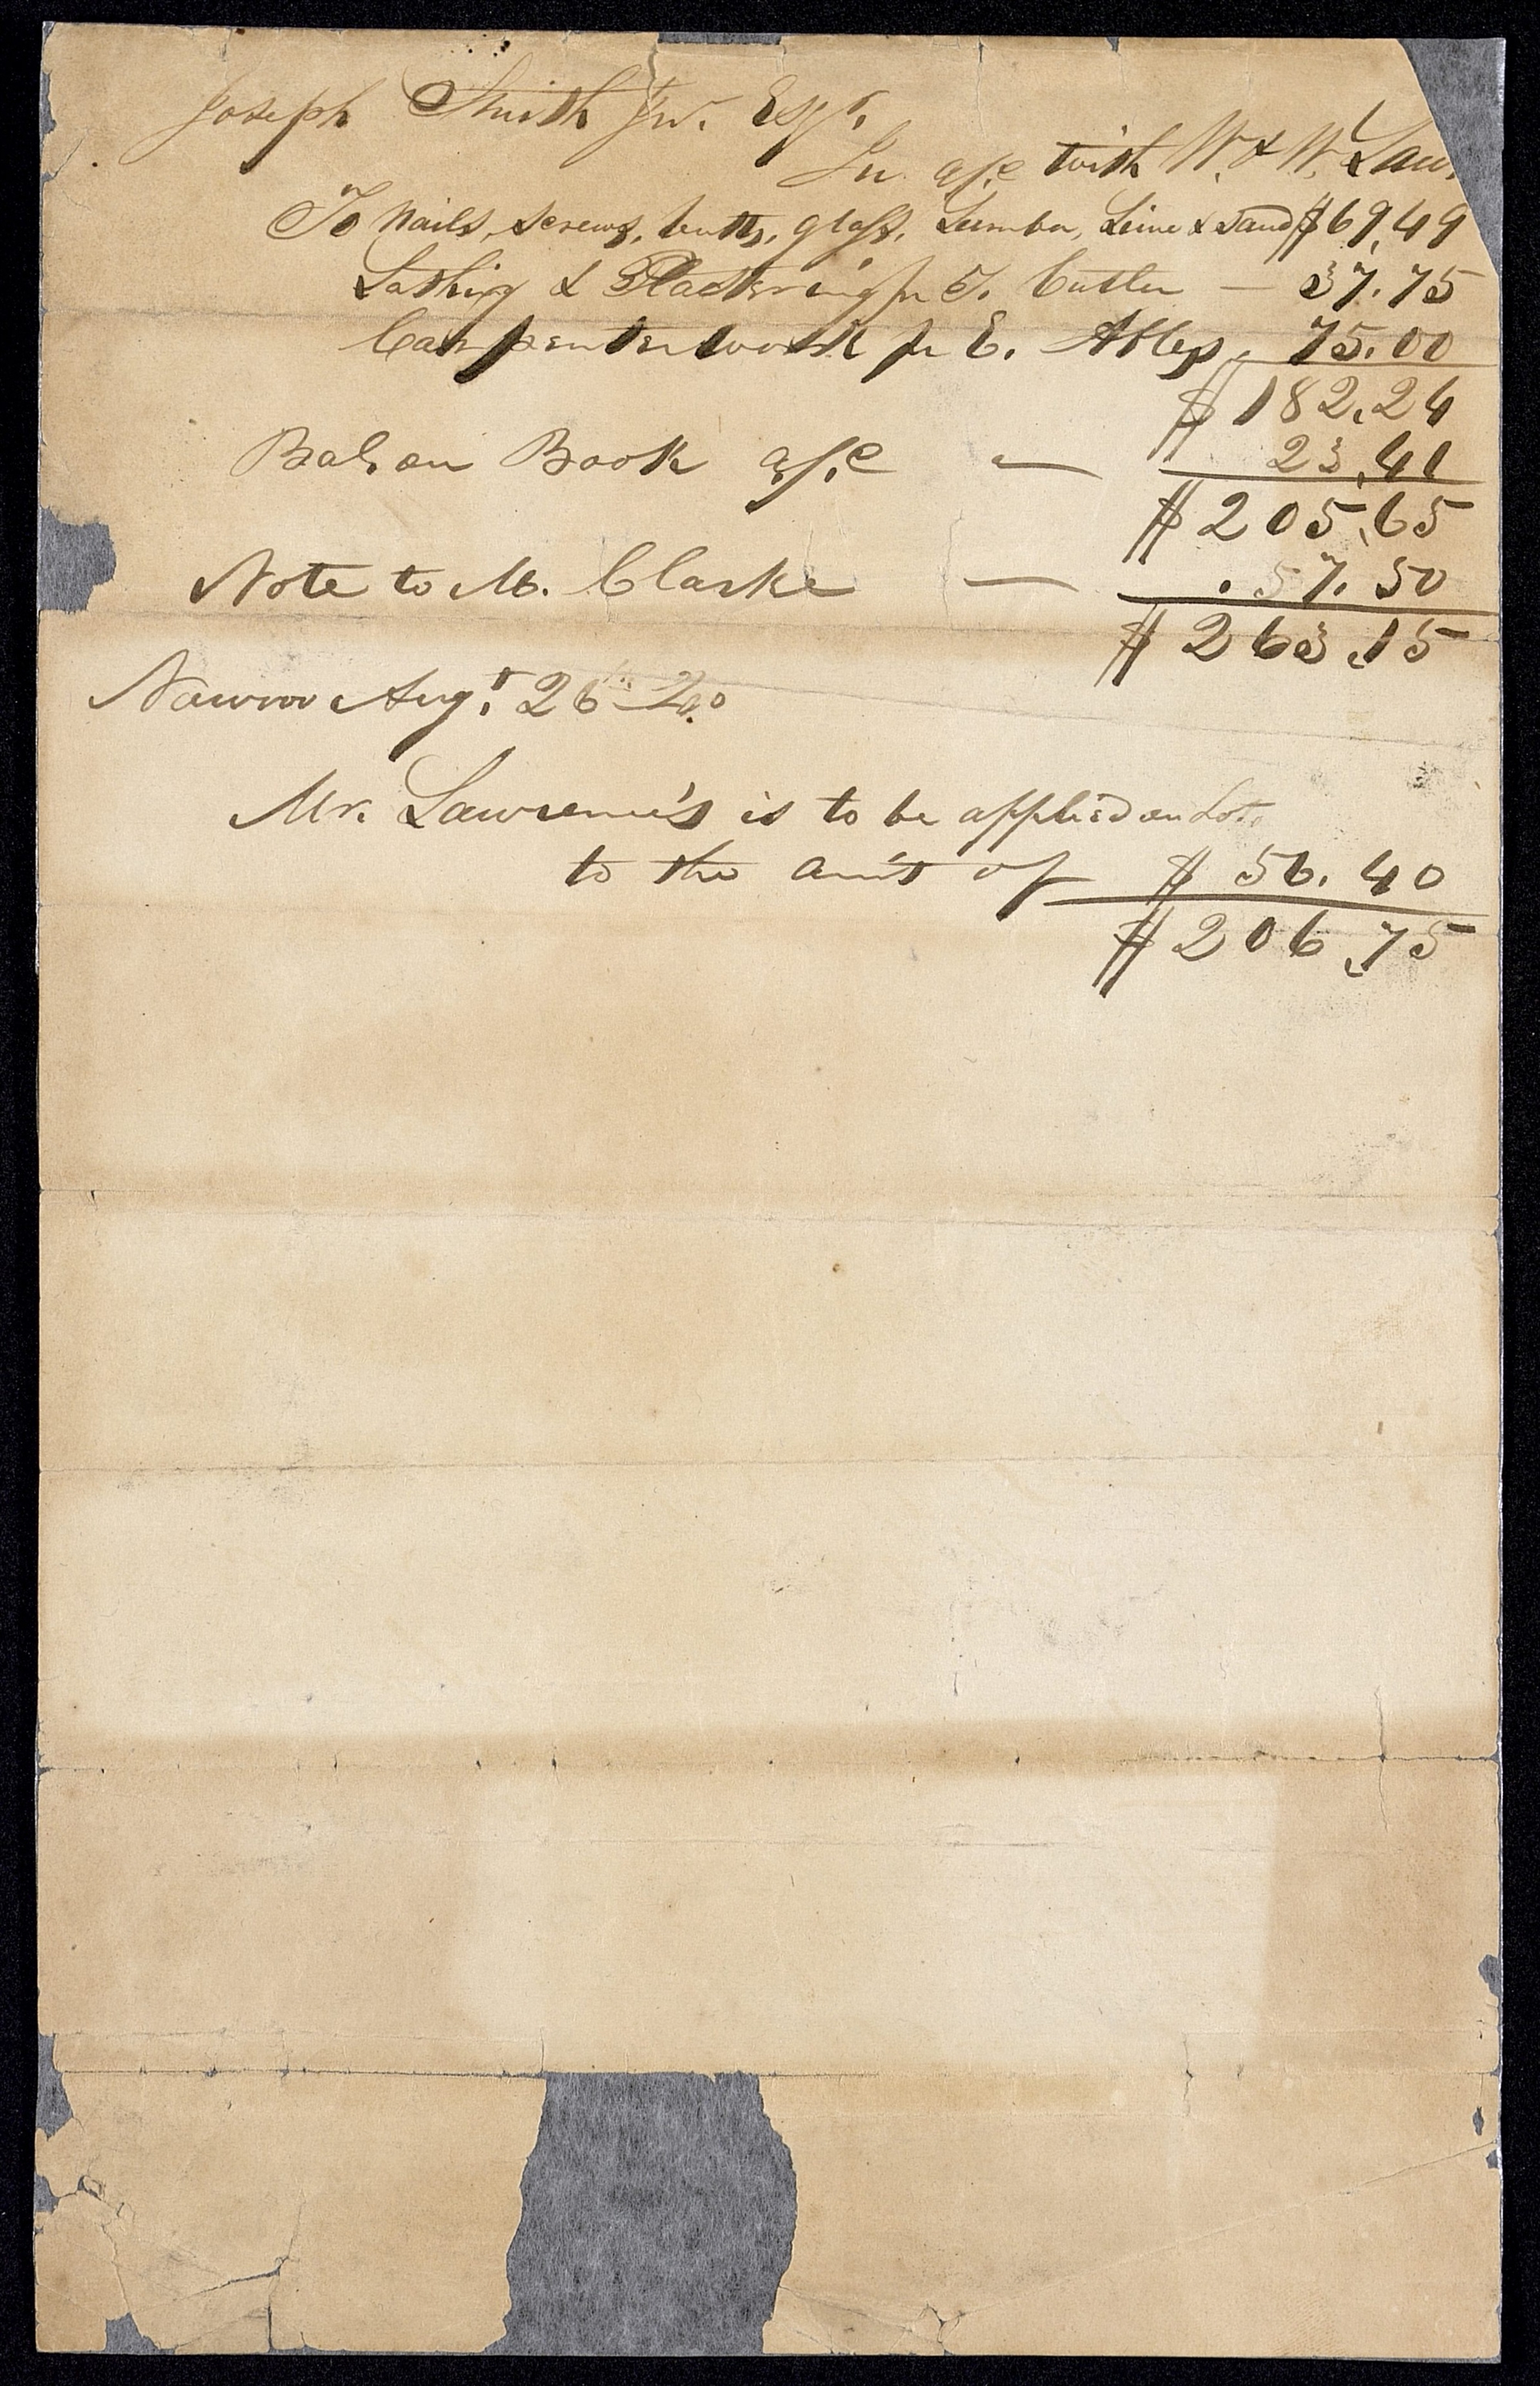 Joseph Smith Jun. Esqr.
In a/c with W. & W. Law.
To Nails, screws, butts, glass, Lumber, Lime & sand $69,49
Lathing & Plastering pr T. Cutler — 37.75
Carpenter work pr E. Ables. 75.00
$182,24
Bal. on Book a/c — 23,41
$205,65
Note to M. Clarke — 57.50
$263,15
Nauvoo Augt. 26th
Mr. Lawrence's is to be applied on Lot.
to the am't of $56.40
$206,75